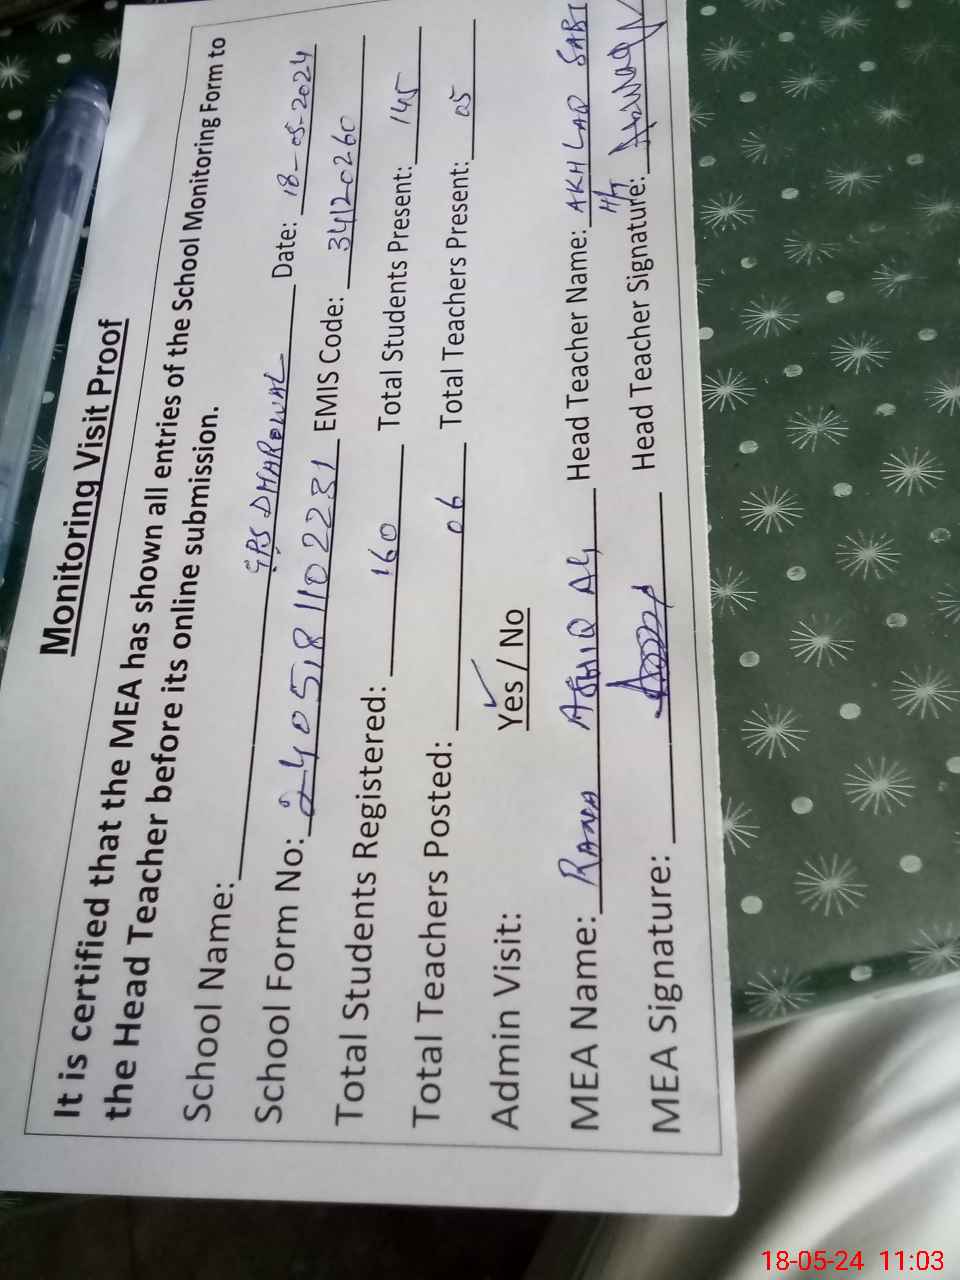 Monitoring Visit Proof
It is certified that the MEA has shown all entries of the School Monitoring Form to
the Head Teacher before its online submission.
School Name: GPS DHAROWAL Date: 18-05-2024
School Form No: 2405181102231 EMIS Code: 34120260
Total Students Registered: 160 Total Students Present: 145
Total Teachers Posted: 06 Total Teachers Present: 05
Admin Visit: Yes / No
MEA Name: RANA ASHIQ ALI Head Teacher Name: AKHLAQ SABI
MEA Signature: Head Teacher Signature:
18-05-24 11:03